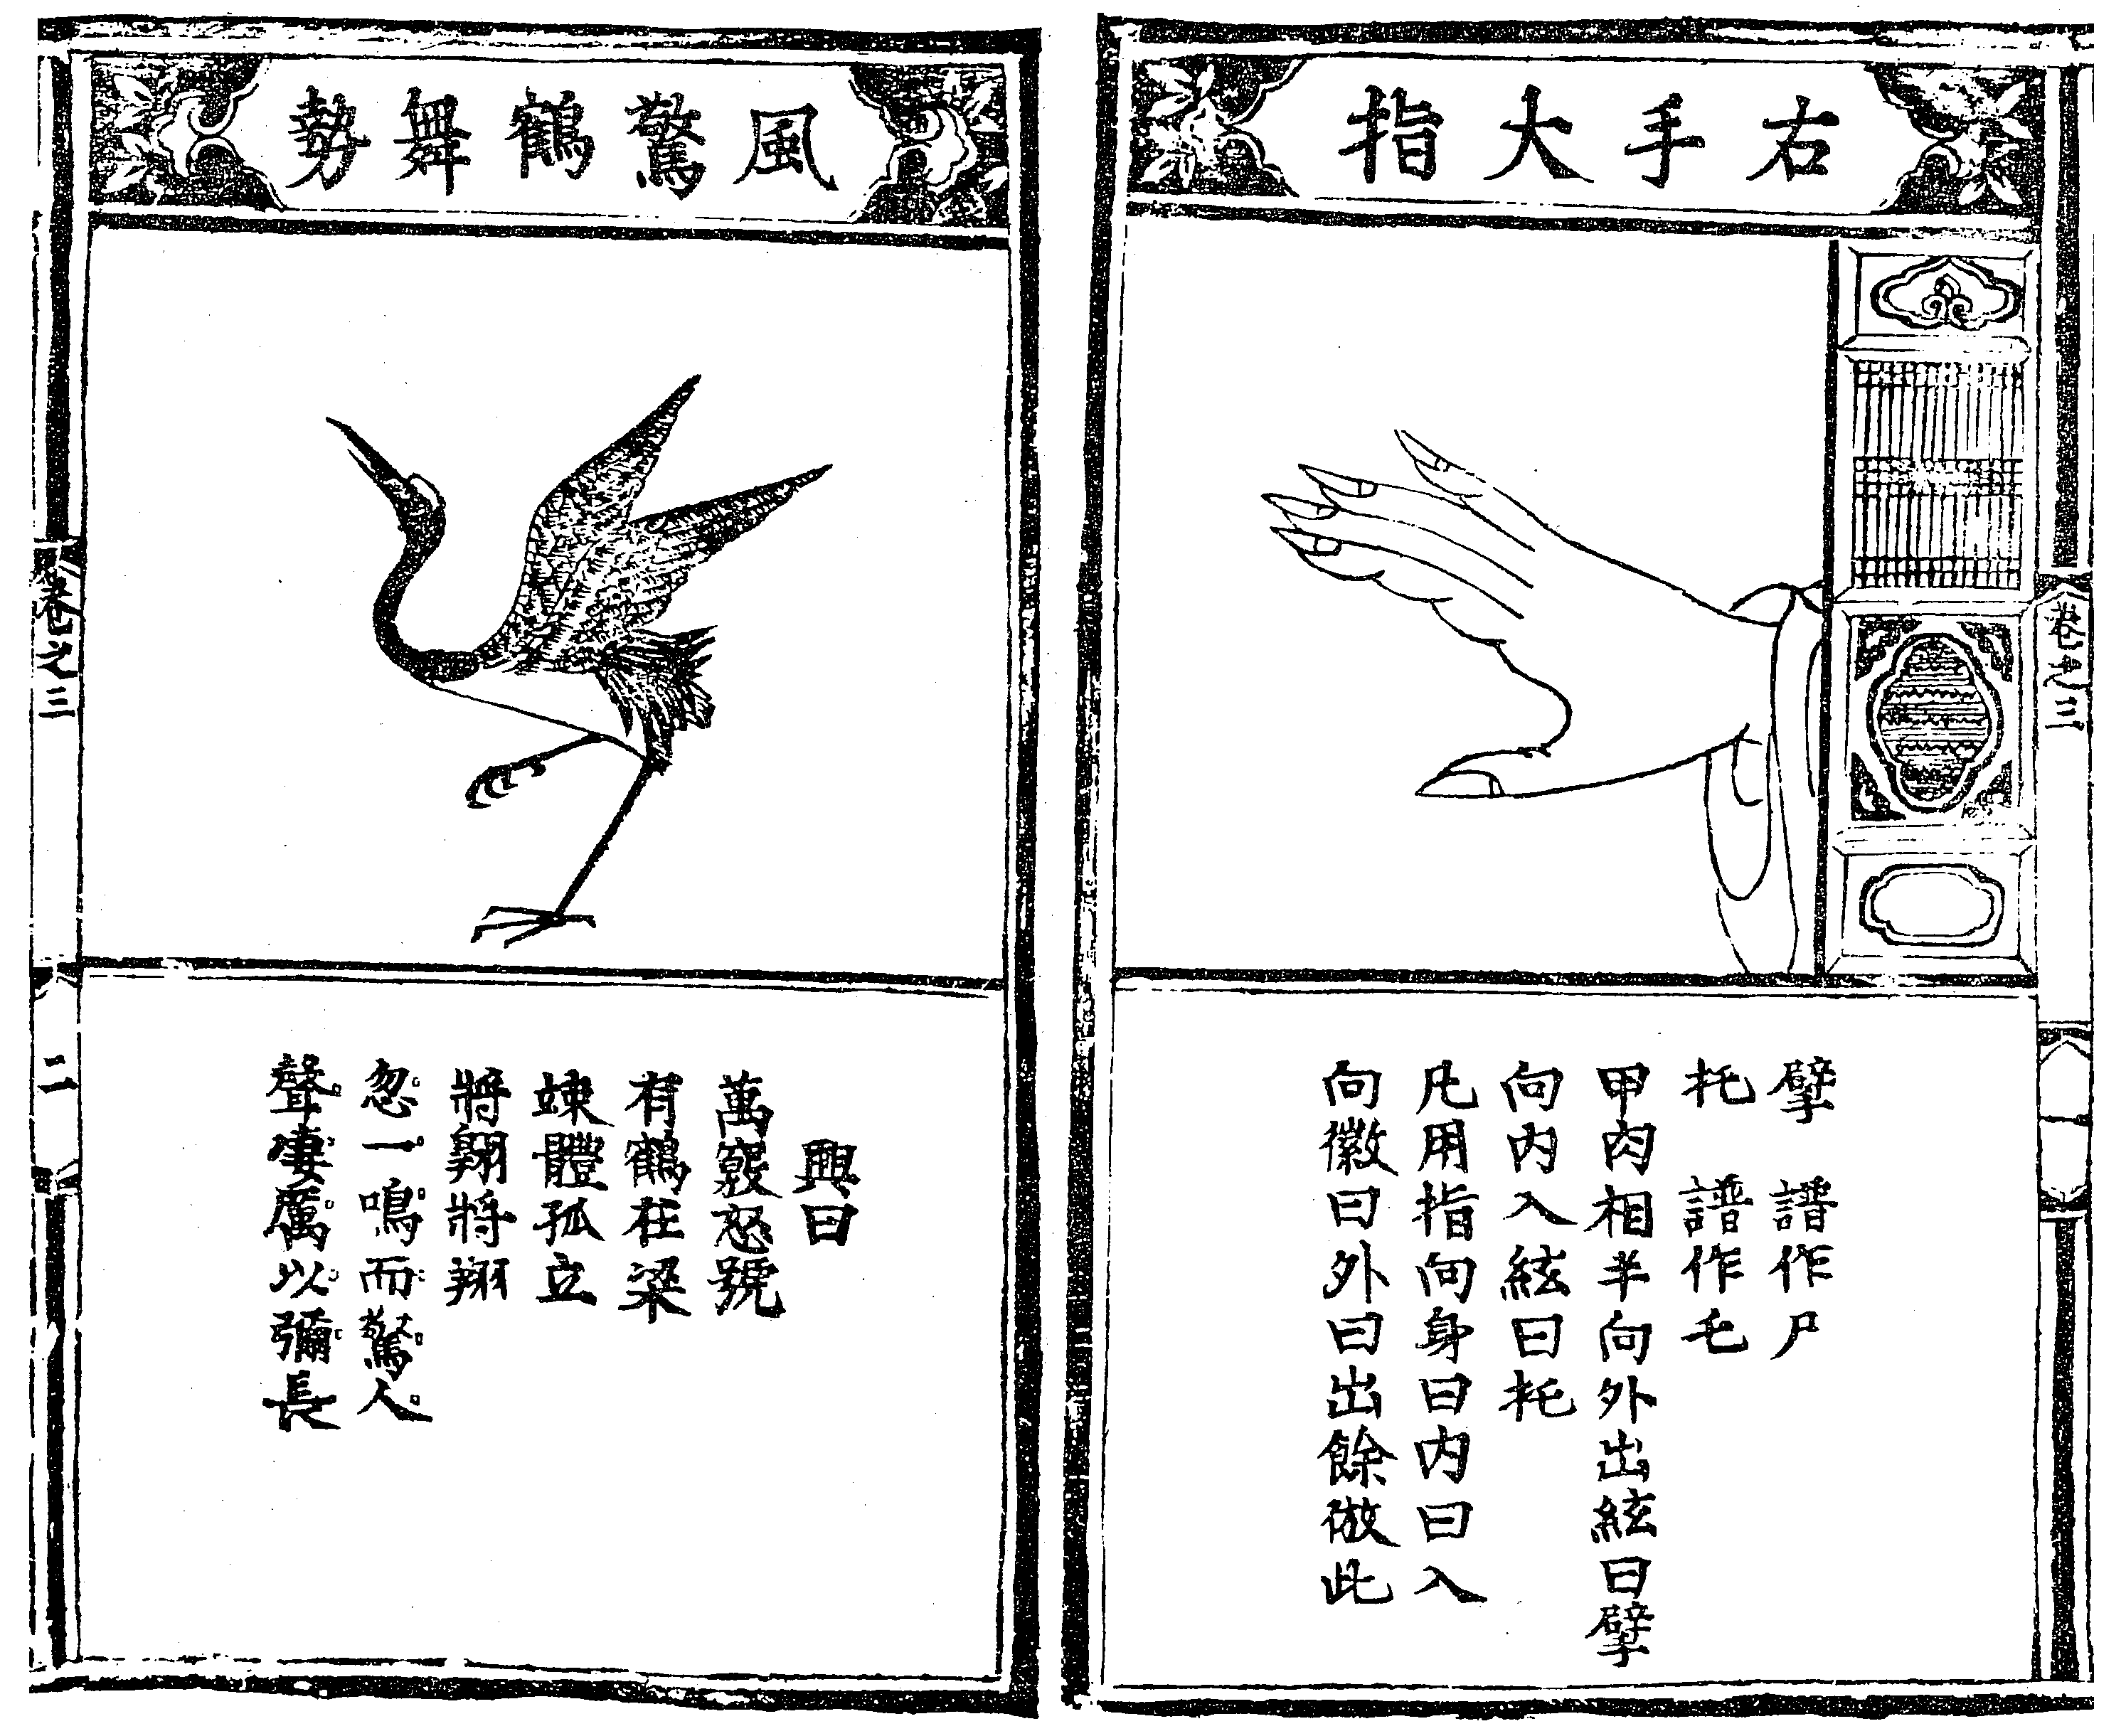 右手大指
擘　譜作尸
托　譜作乇
甲肉相半向外出絃曰擘
向内入絃曰托
凡用指向身曰内曰入
向徽曰外曰出餘倣此
風驚鶴舞勢
興曰
萬竅怒號
有鶴在梁
竦體孤立
將翺將翔
忽一鳴而驚人
聲凄厲以彌長
卷之三
二